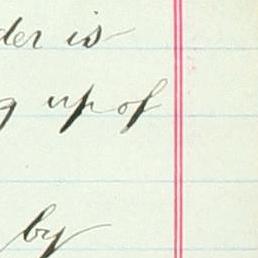 der is
g up of
by